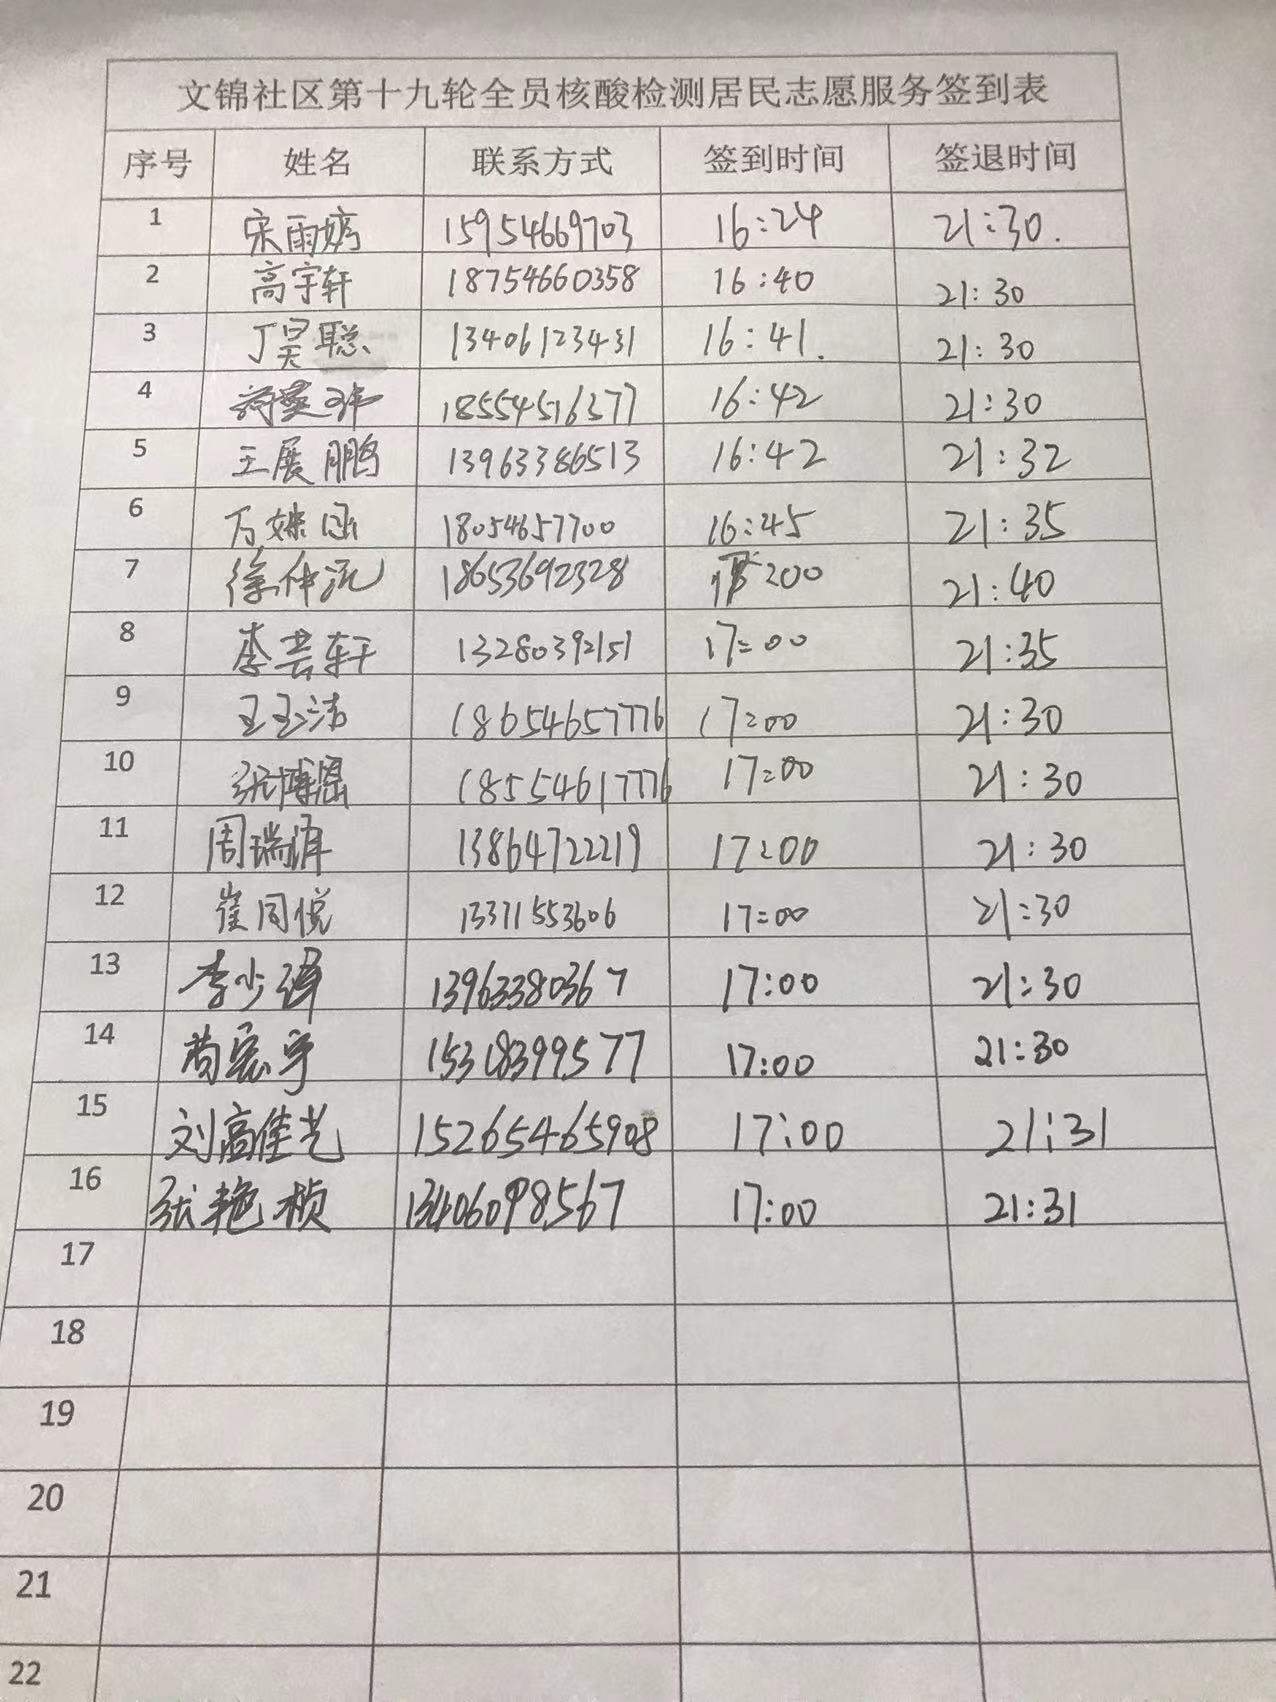 文锦社区第十九轮全员核酸检测居民志愿服务签到表
序号 姓名 联系方式 签到时间 签退时间
1 宋雨婷 15954669703 16:24 21:30.
2 高宇轩 18754660358 16:40 21:30
3 丁昊聪 13406123431 16:41. 21:30
4 18554516377 16:42 21:30
5 王展鹏 13963386513 16:42 21:32
6 万姝涵 18054657700 16:45 21:35
7 徐仲沅 18653692328 :00 21:40
8 李芸轩 13280392151 17:00 21:35
9 王玉洁 18654657776 17:00 21:30
10 张博涵 18554617776 17:00 21:30
11 周瑞泽 13864722219 17:00 21:30
12 崔同悦 13371553606 17:00 21:30
13 李少泽 13963380367 17:00 21:30
14 苟宸宇 15318399577 17:00 21:30
15 刘高佳艺 15265465908 17:00 21:31
16 张艳桢 13406098567 17:00 21:31
17
18
19
20
21
22